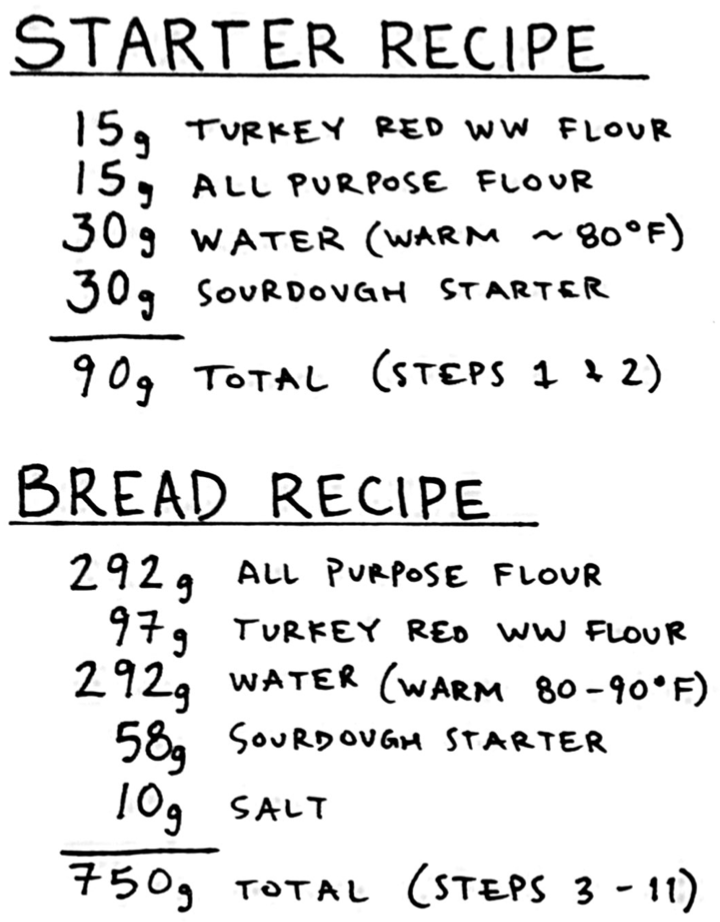 STARTER RECIPE
15g TURKEY RED WW FLOUR
15g ALL PURPOSE FLOUR
30g WATER (WARM ~ 80°F)
30g SOURDOUGH STARTER
90g TOTAL (STEPS 1 & 2)
BREAD RECIPE
292g ALL PURPOSE FLOUR
97g TURKEY RED WW FLOUR
292g WATER (WARM 80-90°F)
58g SOURDOUGH STARTER
10g SALT
750g TOTAL (STEPS 3 - 11)